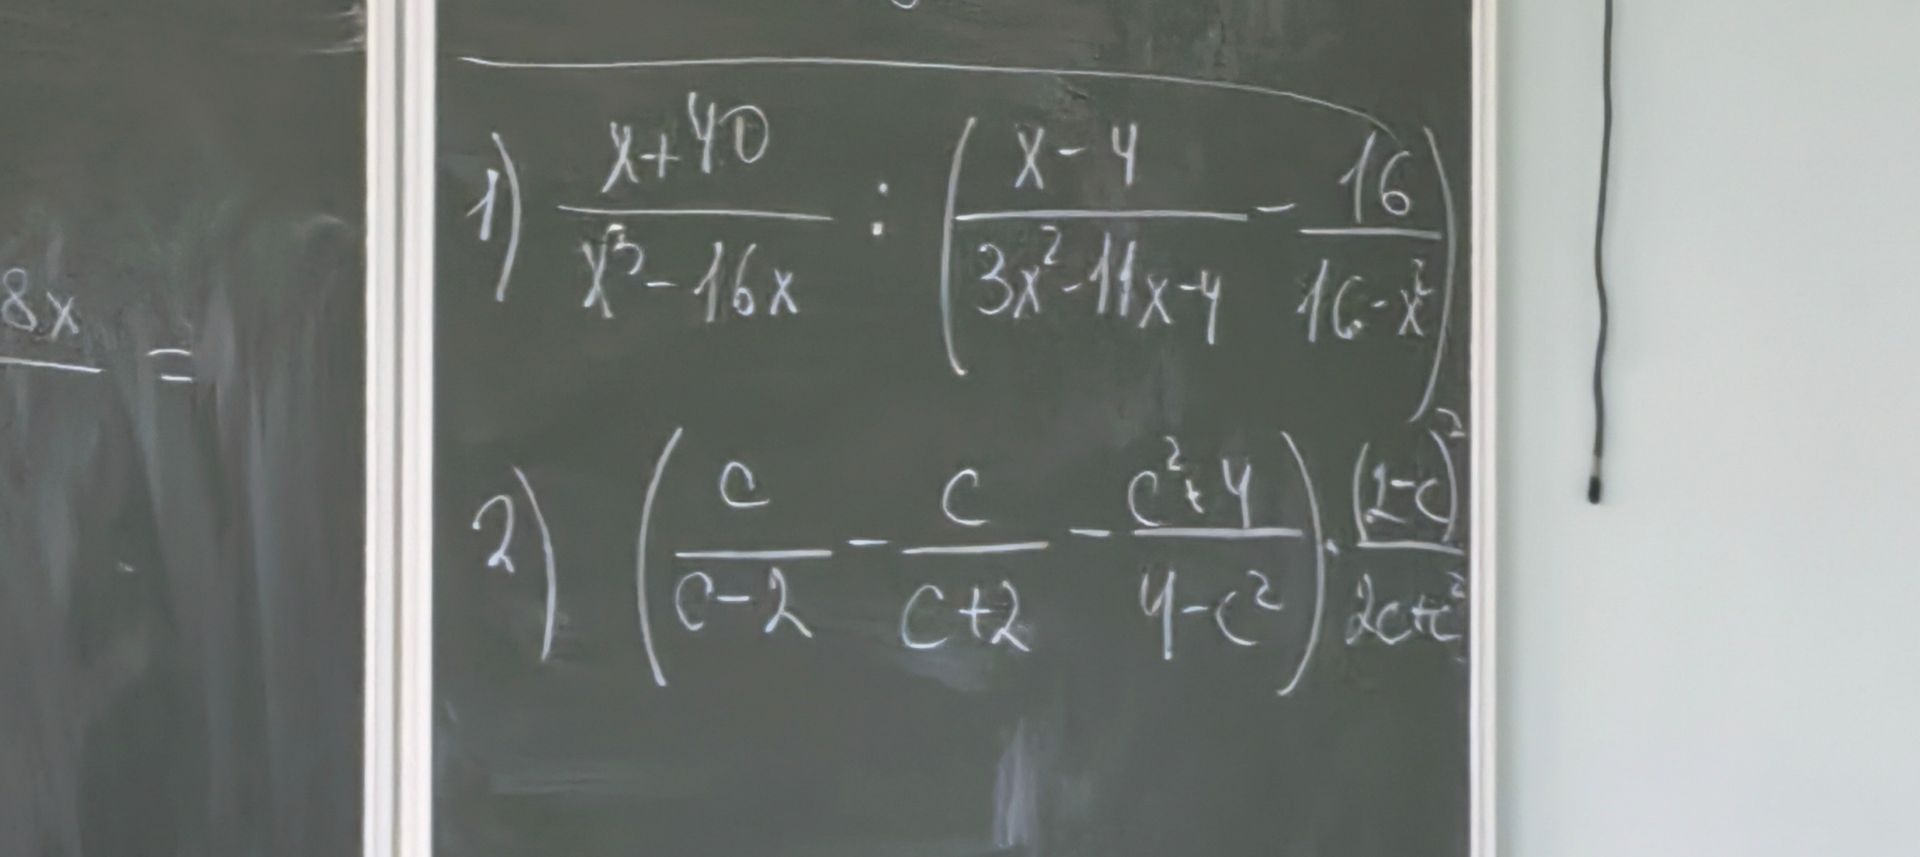 8x/ =
1) (x+40)/(x³-16x) : ((x-4)/(3x²-11x-4) - 16/(16-x²))
2) (c/(c-2) - c/(c+2) - (c²+4)/(4-c²)) · (2-c)²/(2c+c²)